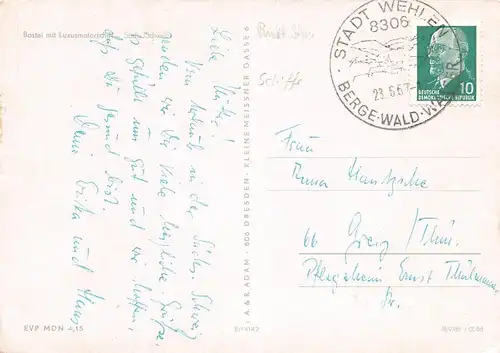 Bastei mit Luxusmotorschiff
Liebe
Vom Urlaub in der Sächs. Schweiz
senden wir Dir viele herzliche Grüße.
Es gefällt uns gut und wir hoffen,
daß Du gesund bist.
Deine Erika und Hans
EVP MDN -,15
A. & R. ADAM · 806 DRESDEN · KLEINE MEISSNER GASSE 6
Schiffe
STADT WEHLEN
8306
BERGE·WALD·WASSER
DEUTSCHE
DEMOKRATISCHE REPUBLIK
10
Frau
66 Greiz/Thür.
Pflegeheim Ernst Thälmann
Str.